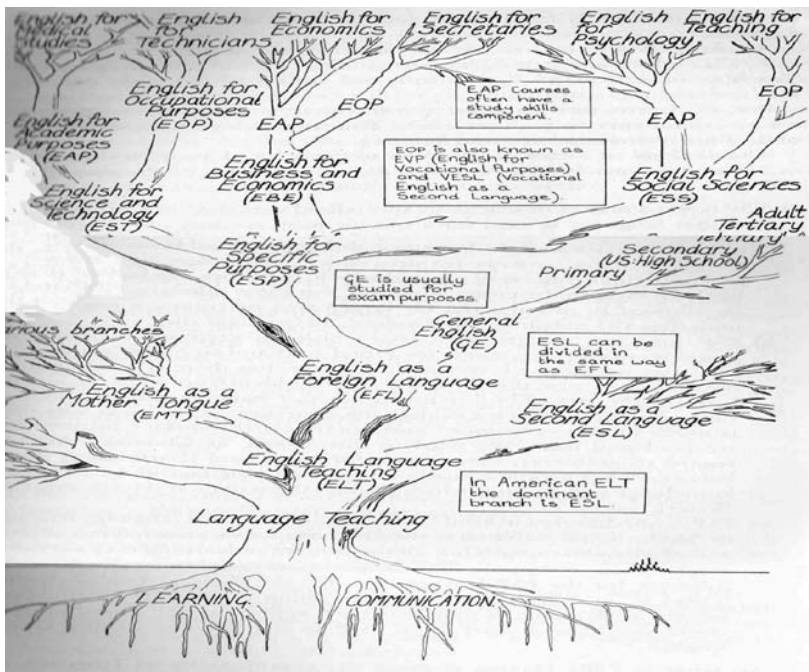 English for
Medical
Studies
English
for
Technicians
English for
Economics
English for
Secretaries
English
for
Psychology
English for
Teaching
English for
Occupational
Purposes
(EOP)
EAP
EOP
EAP Courses
often have a
study skills
component.
EAP
EOP
English for
Academic
Purposes
(EAP)
English for
Business and
Economics
(EBE)
EOP is also known as
EVP (English for
Vocational Purposes)
and VESL (Vocational
English as a
Second Language).
English for
Social Sciences
(ESS)
English for
Science and
Technology
(EST)
Adult
Tertiary
Tertiary
Secondary
(US:High School)
Primary
English for
Specific
Purposes
(ESP)
GE is usually
studied for
exam purposes.
General
English
(GE)
arious branches
ESL can be
divided in
the same way
as EFL.
English as a
Foreign Language
(EFL)
English as a
Mother Tongue
(EMT)
English as a
Second Language
(ESL)
English Language
Teaching
(ELT)
In American ELT
the dominant
branch is ESL.
Language Teaching
LEARNING
COMMUNICATION